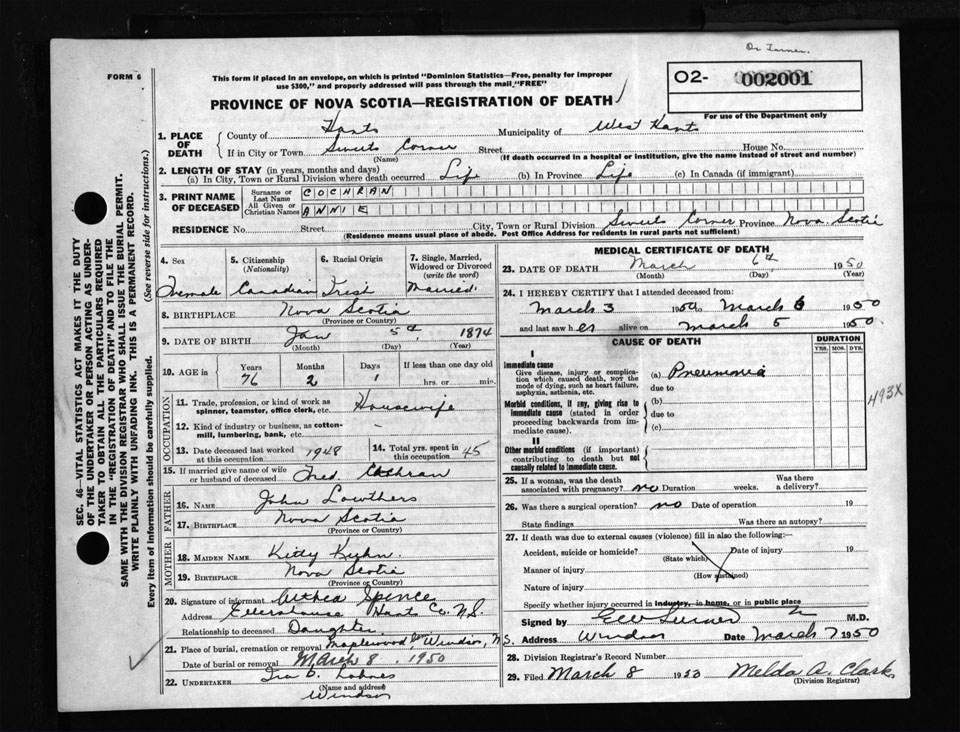 Dr Turner.
FORM 6
This form if placed in an envelope, on which is printed "Dominion Statistics—Free, penalty for improper
use $300," and properly addressed will pass through the mail "FREE"
O2- 002001
For use of the Department only
PROVINCE OF NOVA SCOTIA—REGISTRATION OF DEATH
1. PLACE OF DEATH
County of Hants Municipality of West Hants
If in City or Town Sweets Corner Street House No.
(Name) (If death occurred in a hospital or institution, give the name instead of street and number)
2. LENGTH OF STAY (in years, months and days)
(a) In City, Town or Rural Division where death occurred Life (b) In Province Life (c) In Canada (if immigrant)
3. PRINT NAME OF DECEASED
Surname or Last Name COCHRAN
All Given or Christian Names ANNIE
RESIDENCE No. Street City, Town or Rural Division Sweets Corner Province Nova Scotia
(Residence means usual place of abode. Post Office Address for residents in rural parts not sufficient)
4. Sex 5. Citizenship (Nationality) 6. Racial Origin 7. Single, Married, Widowed or Divorced (write the word)
Female Canadian Irish Married
8. BIRTHPLACE Nova Scotia
(Province or Country)
9. DATE OF BIRTH Jan 5th 1874
(Month) (Day) (Year)
10. AGE in Years Months Days If less than one day old
76 2 1 hrs. or min.
OCCUPATION
11. Trade, profession, or kind of work as spinner, teamster, office clerk, etc. Housewife
12. Kind of industry or business, as cotton-mill, lumbering, bank, etc. -
13. Date deceased last worked at this occupation 1948 14. Total yrs. spent in this occupation 45
15. If married give name of wife or husband of deceased Fred Cochran
FATHER
16. Name John Lowthers
17. BIRTHPLACE Nova Scotia
(Province or Country)
MOTHER
18. MAIDEN NAME Kidy Kuhn.
19. BIRTHPLACE Nova Scotia
(Province or Country)
20. Signature of informant Althea Spence
Address Ellershouse Hants Co. N.S.
Relationship to deceased Daughter
21. Place of burial, cremation or removal Maplewood Windsor, N.S.
Date of burial or removal March 8, 1950
22. UNDERTAKER Ira D. Lohnes
(Name and address)
Windsor
MEDICAL CERTIFICATE OF DEATH
23. DATE OF DEATH March 6th 1950
(Month) (Day) (Year)
24. I HEREBY CERTIFY that I attended deceased from:
March 3 1950 to March 6 1950
and last saw her alive on March 5 1950.
CAUSE OF DEATH DURATION
YRS. MOS. DYS.
I
Immediate cause
Give disease, injury or complication which caused death, NOT the mode of dying, such as heart failure, asphyxia, asthenia, etc.
(a) Pneumonia
due to
Morbid conditions, if any, giving rise to immediate cause (stated in order proceeding backwards from immediate cause).
(b)
due to
(c)
493X
II
Other morbid conditions (if important) contributing to death but not causally related to immediate cause.
25. If a woman, was the death associated with pregnancy? no Duration weeks. Was there a delivery?
26. Was there a surgical operation? no Date of operation 19
State findings Was there an autopsy?
27. If death was due to external causes (violence) fill in also the following:—
Accident, suicide or homicide? Date of injury 19
(State which)
Manner of injury
(How sustained)
Nature of injury
Specify whether injury occurred in industry, in home, or in public place
Signed by EW Turner M.D.
Address Windsor Date March 7 1950
28. Division Registrar's Record Number
29. Filed March 8 1950 Melda A. Clark
(Division Registrar)
SEC. 46—VITAL STATISTICS ACT MAKES IT THE DUTY
OF THE UNDERTAKER OR PERSON ACTING AS UNDER-
TAKER TO OBTAIN ALL THE PARTICULARS REQUIRED
IN THE "REGISTRATION OF DEATH" AND TO FILE THE
SAME WITH THE DIVISION REGISTRAR WHO SHALL ISSUE THE BURIAL PERMIT.
WRITE PLAINLY WITH UNFADING INK. THIS IS A PERMANENT RECORD.
Every item of information should be carefully supplied. (See reverse side for instructions.)